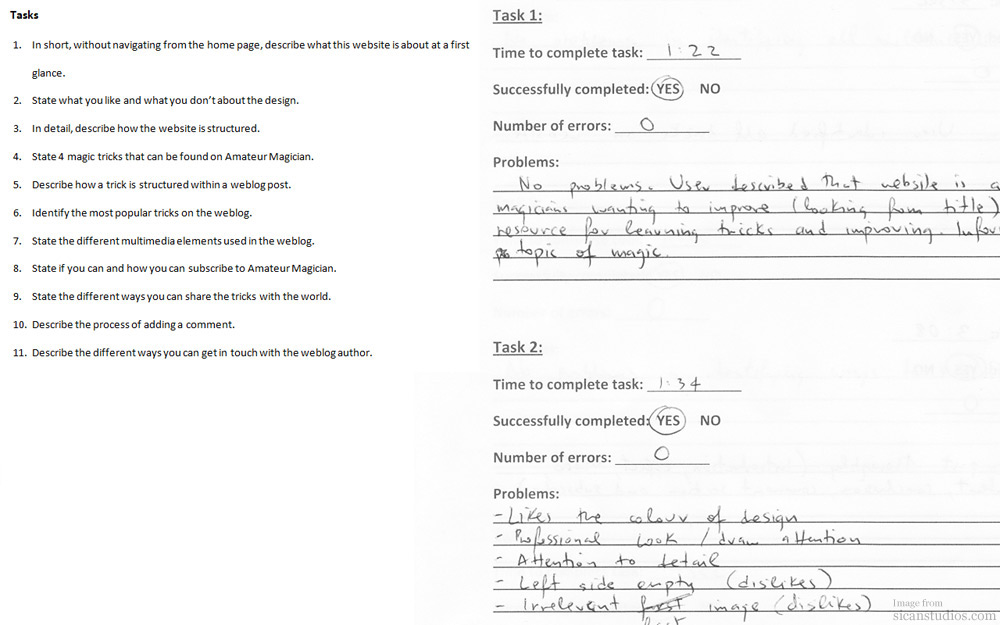 Tasks
1. In short, without navigating from the home page, describe what this website is about at a first
glance.
2. State what you like and what you don't about the design.
3. In detail, describe how the website is structured.
4. State 4 magic tricks that can be found on Amateur Magician.
5. Describe how a trick is structured within a weblog post.
6. Identify the most popular tricks on the weblog.
7. State the different multimedia elements used in the weblog.
8. State if you can and how you can subscribe to Amateur Magician.
9. State the different ways you can share the tricks with the world.
10. Describe the process of adding a comment.
11. Describe the different ways you can get in touch with the weblog author.
Task 1:
Time to complete task: 1:22
Successfully completed: YES NO
Number of errors: 0
Problems:
No problems. User described that website is a
magicians wanting to improve (looking from title)
resource for learning tricks and improving. Infor
topic of magic.
Task 2:
Time to complete task: 1:34
Successfully completed: YES NO
Number of errors: 0
Problems:
- Likes the colour of design
- Professional look / draw attention
- Attention to detail
- Left side empty (dislikes)
- Irrelevent image (dislikes)
Image from
sicanstudios.com